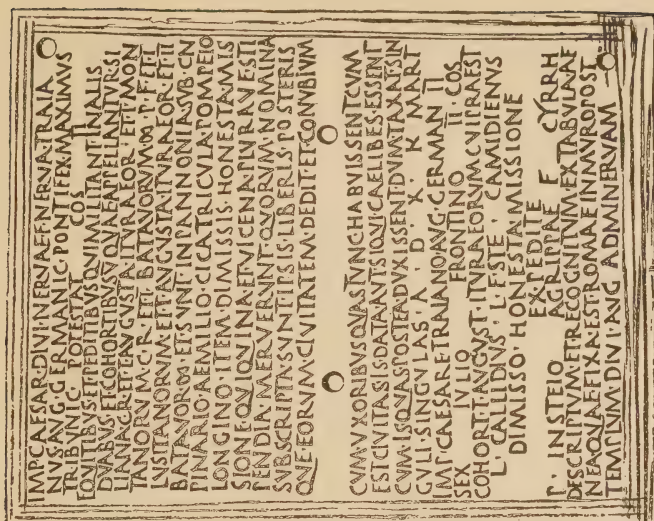 IMP·CAESAR·DIVI·NERVAE·F·NERVA·TRAIA
NVS·AVG·GERMANIC·PONTIFEX·MAXIMVS
TRIBVNIC POTESTAT COS II
EQVITIBVS·ET·PEDITIBVS·QVI·MILITANT·IN·ALIS
DVABVS·ET·COHORTIBVS·QVAE·APPELLANTVR·SI
LIANA·C·R·ET·I·AVGVSTA·ITVRAEOR·ET·I·MON
TANORVM·C·R·ET·I·BATAVORVM·∞·P·F·ET·I
LVSITANORVM·ET·I·AVGVSTA·ITVRAEOR·ET·II
BATAVOR·∞·ET·SVNT·IN·PANNONIA·SVB·CN
PINARIO·AEMILIO·CICATRICVLA·POMPEIO
LONGINO·ITEM·DIMISSIS·HONESTA·MIS
SIONE·QVI·QVINA·ET·VICENA·PLVRAVE·STI
PENDIA·MERVERVNT·QVORVM·NOMINA
SVBSCRIPTA·SVNT·IPSIS·LIBERIS·POSTERIS
QVE·EORVM·CIVITATEM·DEDIT·ET·CONVBIVM
CVM·VXORIBVS·QVAS·TVNC·HABVISSENT·CVM
EST·CIVITAS·IIS·DATA·AVT·SIQVI·CAELIBES·ESSENT
CVM·IIS·QVAS·POSTEA·DVXISSENT·DVMTAXAT·SIN
GVLI·SINGVLAS·A·D·X·K·MART
IMP·CAESARE·TRAIANO·AVG·GERMAN II
SEX IVLIO FRONTINO II COS
COHORT·I·AVGVST·ITVRAEORVM·CVI·PRAEST
L·CALLIDIVS·L·F·STE·CAMIDIENVS
DIMISSO·HONESTA·MISSIONE
EX·PEDITE
P·INSTEIO AGRIPPAE F CYRRH
DESCRIPTVM·ET·RECOGNITVM·EX·TABVLA·AE
NEA·QVAE·FIXA·EST·ROMAE·IN·MVRO·POST
TEMPLVM·DIVI·AVG·AD·MINERVAM